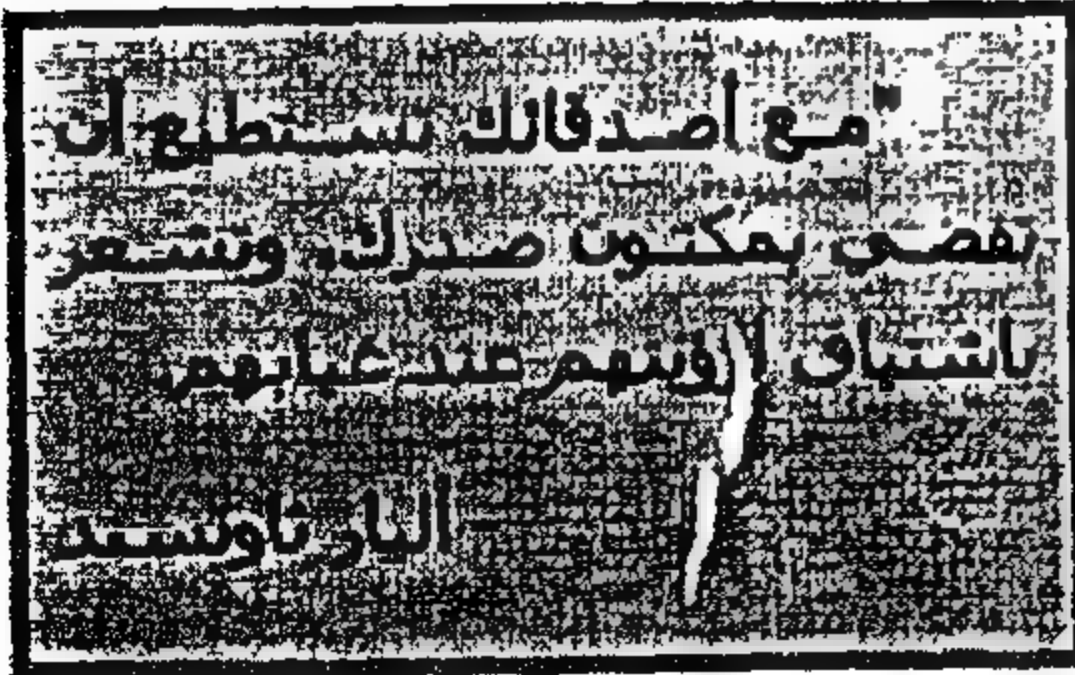 "مع أصدقائك تستطيع أن
تفضي بمكنون صدرك، وتشعر
باشتياق لرؤيتهم عند غيابهم.
البار تاونسند